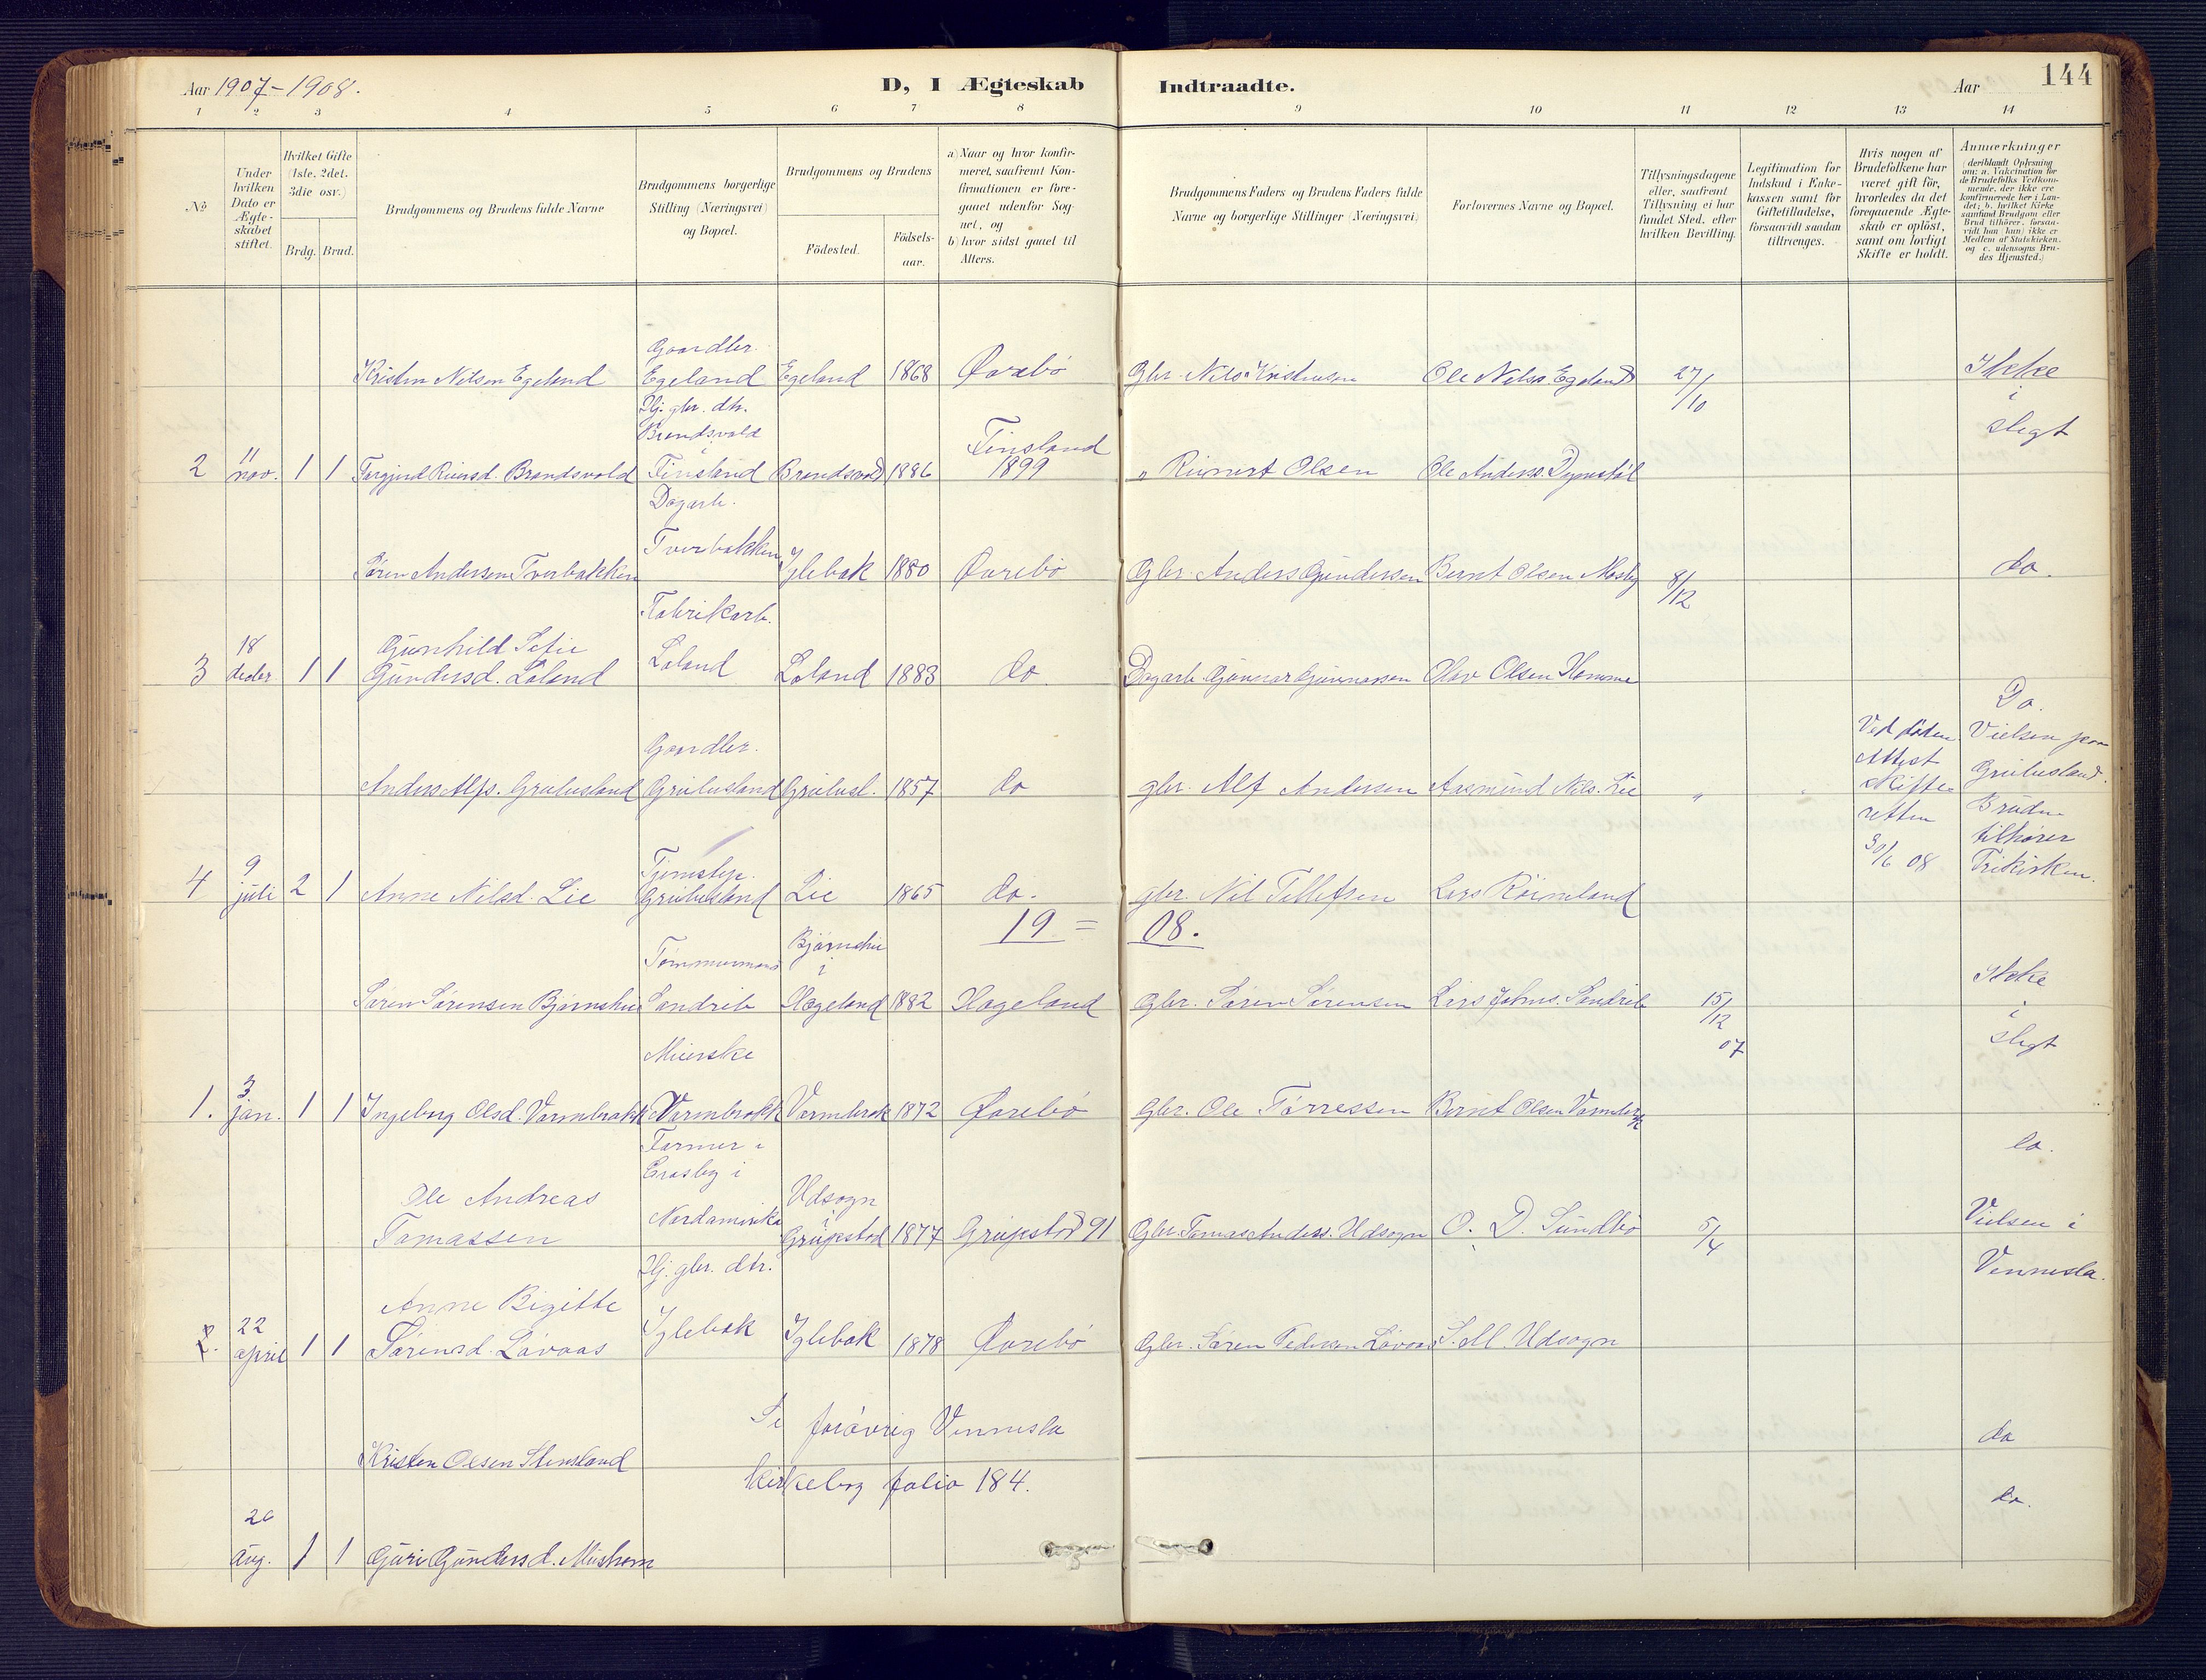 Aar 1907-1908.
D, I Ægteskab Indtraadte.
Aar
144
1 2 3 4 5 6 7 8 9 10 11 12 13 14
No
Under hvilken Dato er Ægteskabet stiftet.
Hvilket Gifte (1ste, 2det, 3die osv.)
Brdg. Brud.
Brudgommens og Brudens fulde Navne
Brudgommens borgerlige Stilling (Næringsvei) og Bopæl.
Brudgommens og Brudens
Födested.
Födselsaar.
a) Naar og hvor konfirmeret, saafremt Konfirmationen er foregaaet udenfor Sognet, og
b) hvor sidst gaaet til Alters.
Brudgommens Faders og Brudens Faders fulde Navne og borgerlige Stillinger (Næringsvei)
Forlovernes Navne og Bopæl.
Tillysningsdagene eller, saafremt Tillysning ei har fundet Sted, efter hvilken Bevilling.
Legitimation for Indskud i Enkekassen samt for Giftetilladelse, forsaavidt saadan tiltrænges.
Hvis nogen af Brudefolkene har været gift för, hvorledes da det foregaaende Ægteskab er oplöst, samt om lovligt Skifte er holdt.
Anmærkninger (deriblandt Oplysning om: a. Vakcination for de Brudefolks Vedkommende, der ikke ere konfirmerede her i Landet; b. hvilket Kirkesamfund Brudgom eller Brud tilhörer, forsaavidt han (hun) ikke er Medlem af Statskirken, og c. udensogns Brudes Hjemsted.)
Kristen Nilsen Egeland
Gaardbr. Egeland
Egeland 1868 Øvrebö
Gbr. Nils Kristensen
Ole Nilss. Egeland
27/10
Ikke i slegt
2 11 nov. 1 1 Torgjerd Reiersd. Brandsvold
Hj. gbr. dtr. Brandsvold i Finsland
Brandsvold 1886 Finsland 1899
" Reinert Olsen
Søren Andersen Tverbakken
Dagarb. Tverbakken
Iglebæk 1880 Øvrebö
Gbr. Anders Gundersen
Bernt Olsen Mosby
8/12
do.
3 18 decbr. 1 1 Gunhild Sofie Gundersd. Løland
Fabrikarb. Løland
Løland 1883 do.
Dagarb. Gunnar Gunnarsen
Olav Olsen Homme
Anders Alfs. Greibesland
Gaardbr. Greibesland
Greibesl. 1857 do
gbr. Alf Andersen
Aasmund Nils. Lie
" "
Ved døden Attest Skifteretten 30/6 08
Do. Vielsen paa Greibesland. Bruden tilhører Frikirken.
4 9 juli 2 1 Anne Nilsd. Lie
Tjenestep. Greibesland
Lie 1865 do.
gbr. Nil Tellefsen
Lars Röineland
19 = 08.
Søren Sørensen Bjørnehei
Tømmermand Sandrib
Bjørnehei i Hægeland 1882 Hægeland
Gbr. Søren Sørensen
Lars Johns. Sandrib
15/12 07
Ikke i slegt
1. 3 jan. 1 1 Ingeborg Olsd. Varmbrækk
Meierske Varmbrækk
Varmbræk 1872 Øvrebö
Gbr. Ole Tørressen
Bernt Olsen Varmbræk
do.
Ole Andreas Tomassen
Farmer i Crosby i Nordamerika
Udsogn i Greipstad 1877 Greipstad 91
Gbr. Tomas Anderss. Udsogn
O. D. Sundbö
5/4
Vielsen i Vennesla.
2. 22 april 1 1 Anne Bigitte Sørensd. Løvaas
Hj. gbr. dtr. Iglebæk
Iglebæk 1878 Øvrebö
Gbr. Søren Pedersen Løvaas
S. M. Udsogn
Kristen Olsen Stensland
Se forøvrig Vennesla
kirkebog folio 184.
do
20 aug. 1 1 Guri Gundersd. Mushom
do.